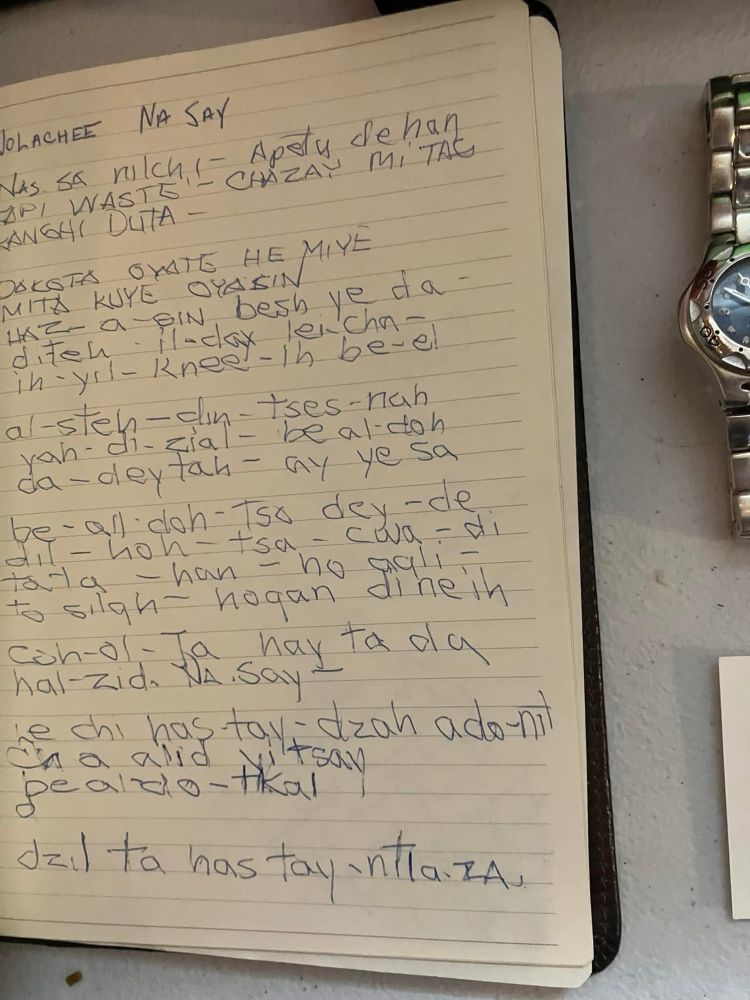 WOLACHEE NA SAY
NAS. SA nilchi - Apetu dehan
ZAPI WASTE - CHAZAY MI TAC
KANGHI DUTA -
DAKOTA OYATE HE MIYE
MITA KUYE OYASIN
HAZ - A - SIN besh ye da -
diteh - il-day lei-cha -
ih-yil - knee-ih be-el
al-steh - din - tses-nah
yah-di-zial - be al-doh
da-dey tah - ay ye sa
be-all-doh-tso dey-de
dil-hoh-tsa-cwa-di
ta'la - han - ho agli -
to silgh - hogan dineih
coh-ol-Ta hay ta da
hal-zid. NA.Say -
he chi has-tay-dzah ado-nil
cha a alid yiltsay
be aldo-tkal
dzil ta has tay-ntla.ZA.